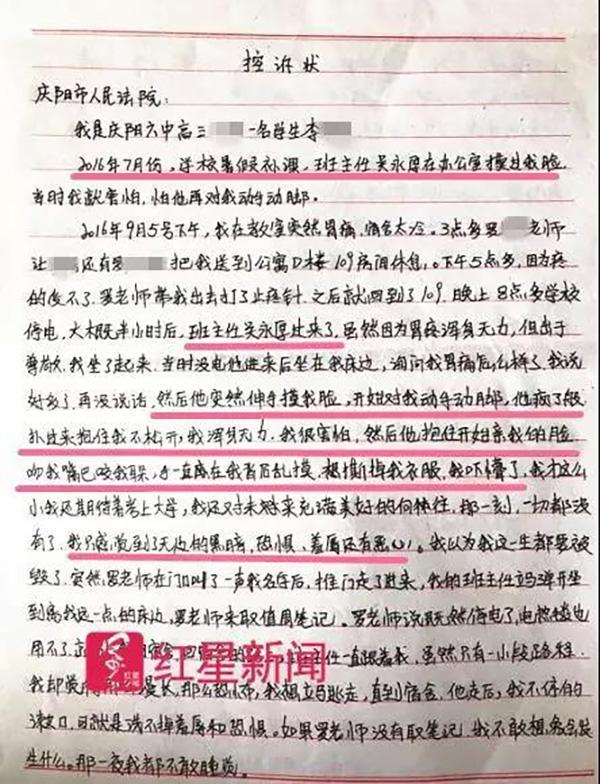 控诉状
庆阳市人民法院:
我是庆阳六中高三 一名学生李
2016年7月份,学校暑候补课,班主任吴永厚在办公室摸过我脸
当时我就害怕,怕他再对我动手动脚。
2016年9月5号下午,我在教室突然胃痛,宿舍太冷。3点多罗 老师
让 还有罗 把我送到公寓D楼109房间休息。下午5点多,因为疼
的受不了.罗老师带我出去打了止疼针.之后就回到了109.晚上8点多学校
停电,大概半小时后,班主任吴永厚过来了,虽然因为胃疼浑身无力,但出于
尊敬,我坐了起来.当时没电他进来后坐在我床边,询问我胃痛怎么样了.我说
好多了.再没说话,然后他突然伸手摸我脸,开始对我动手动脚,他疯了般
扑过来抱住我不松开,我浑身无力.我很害怕,然后他抱住开始亲我的脸
吻我嘴巴咬我耳朵,手一直在我背后乱摸,想撕掉我衣服,我吓懵了,我才这么
小我还期待着考上大学,我还对未来充满美好的向往,那一刻,一切都没
有了.我只感觉到了无边的黑暗,恐惧、羞辱还有恶心.我以为我这一生都要被
毁了.突然罗老师在门口叫了一声我名字后,推门走了进来,我的班主任立马弹开坐
到离我远一点的床边,罗老师来取值周笔记。罗老师说既然停电了,电热毯也
用不了 班主任一直跟着我,虽然只有一小段路程.
我却觉得 漫长,那么恐怖,我想立马逃走,直到宿舍,他走后,我不停的
漱口.可就是洗不掉羞辱和恐惧。如果罗老师没有取笔记,我不敢想象会发
生什么。那一夜我都不敢睡觉。
红星新闻